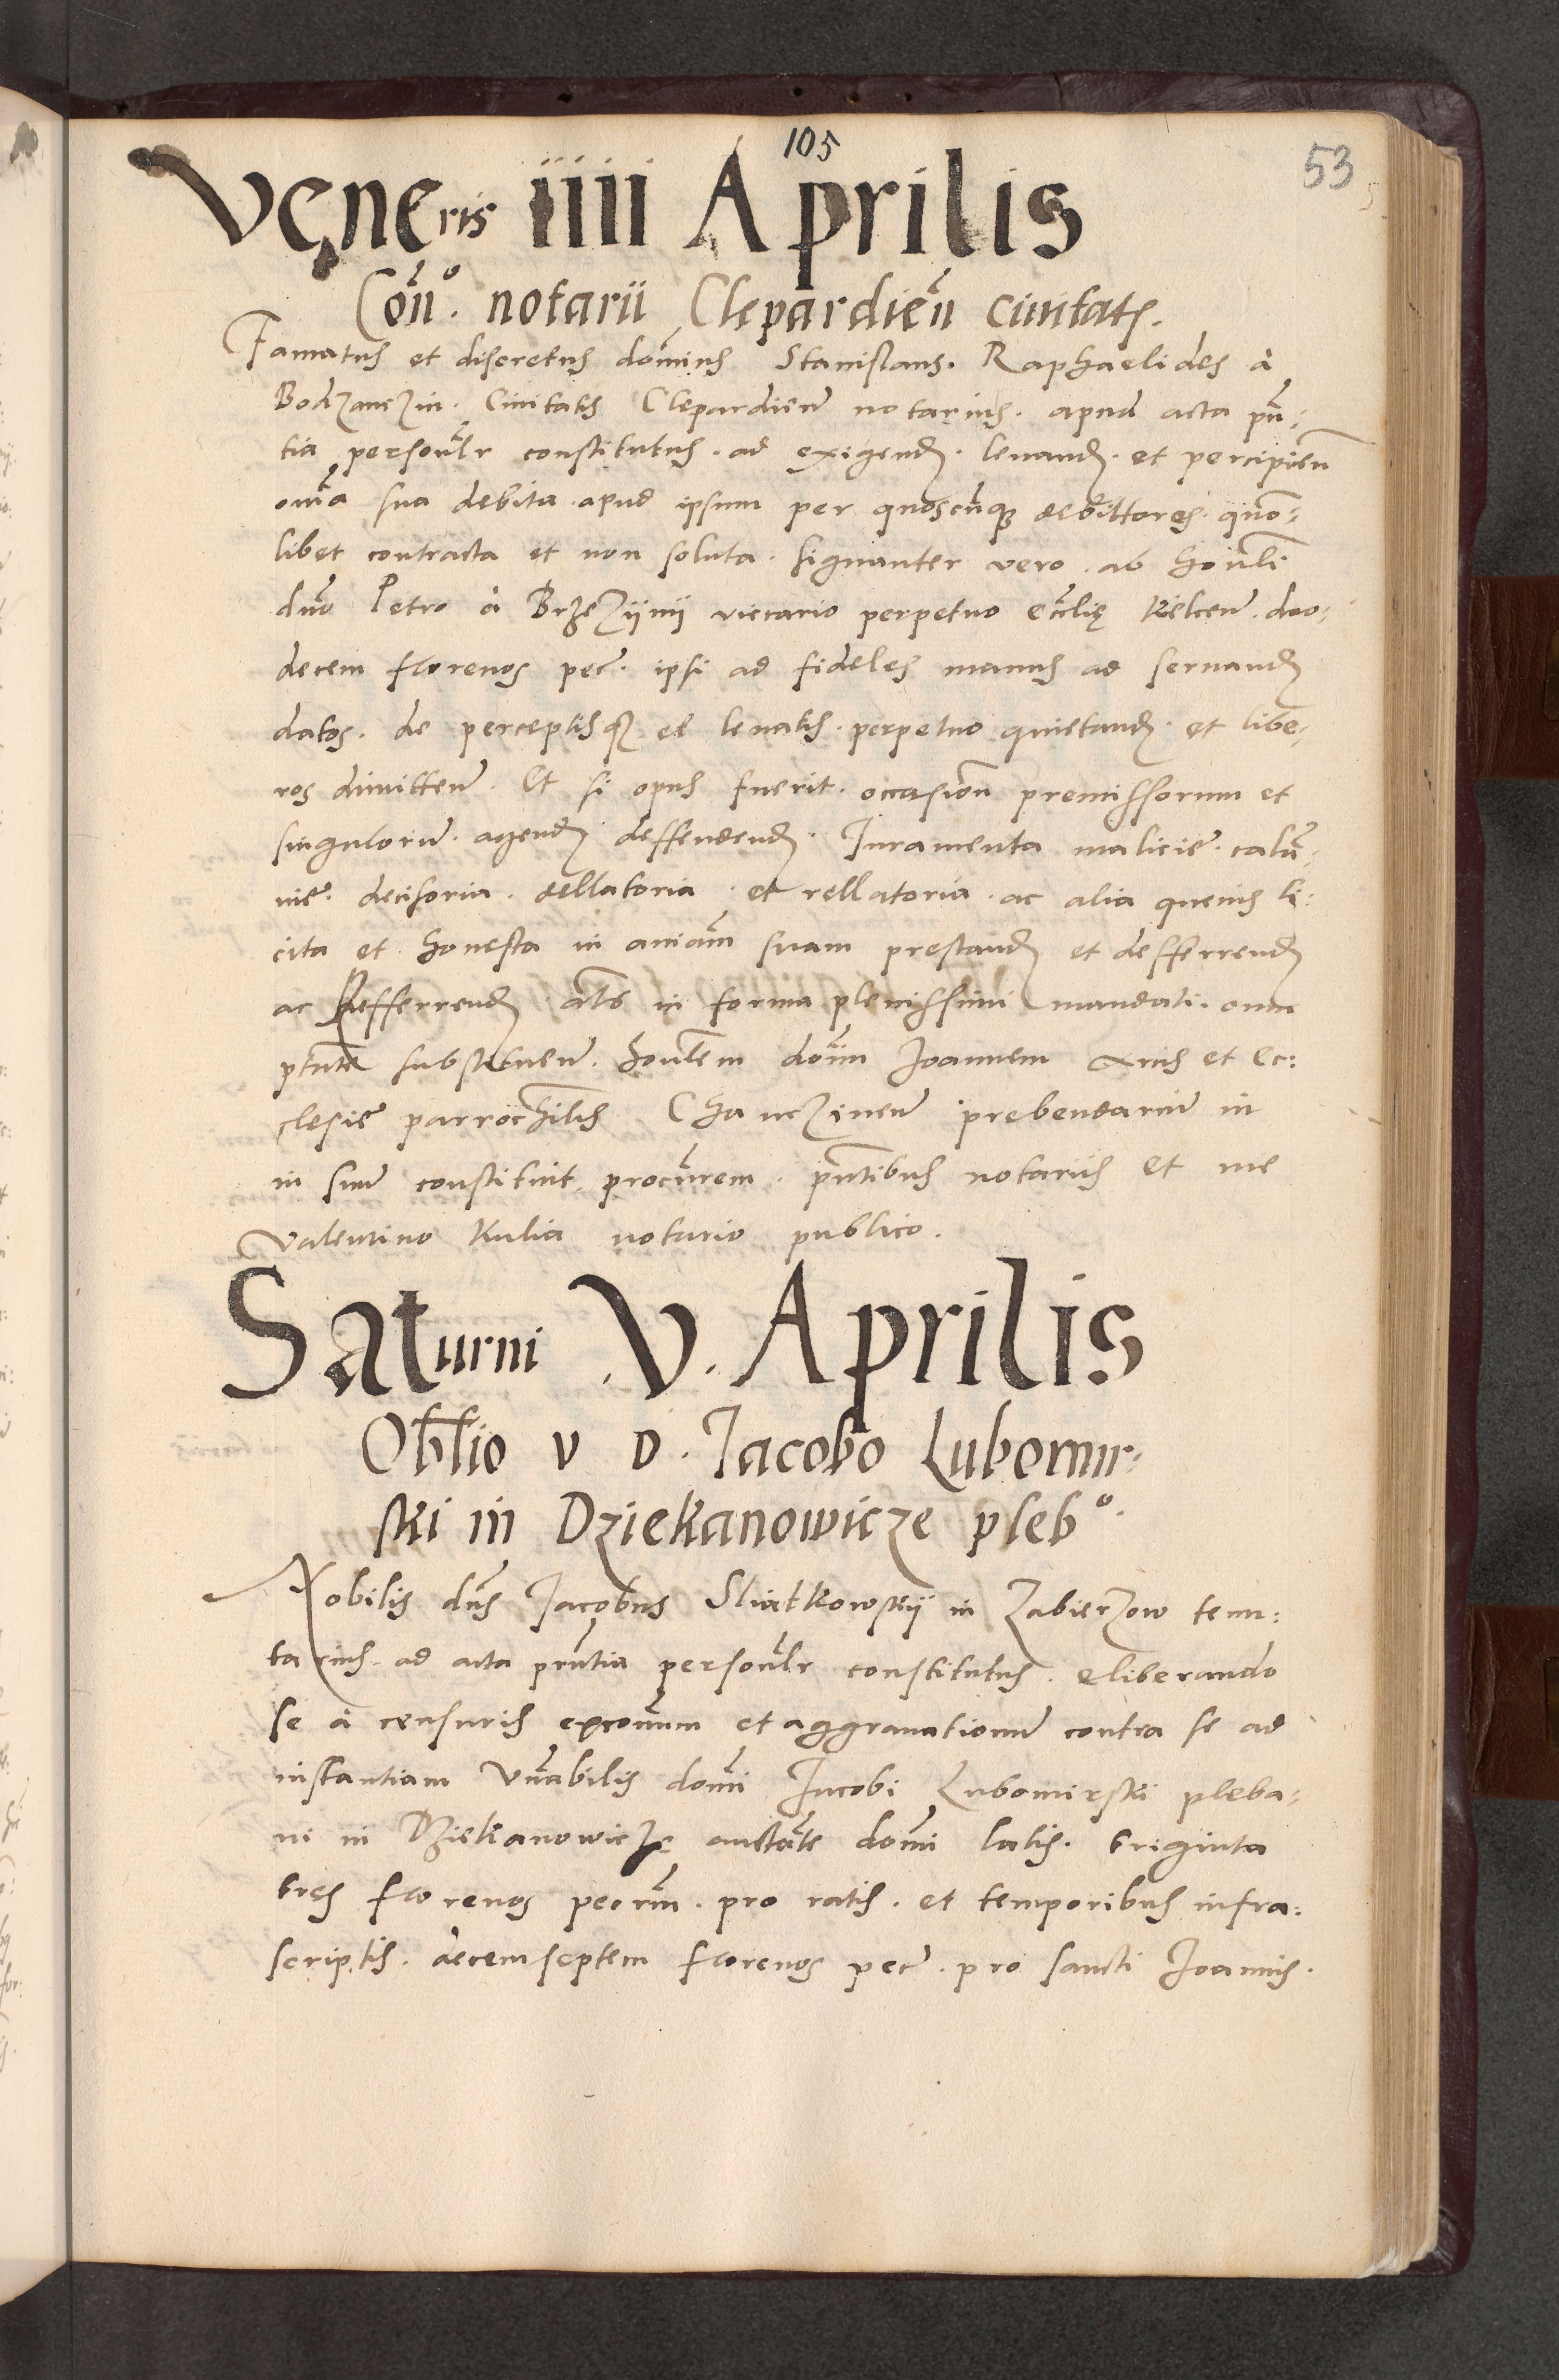 105
53
Veneris iiii Aprilis
Con̄o. notarii Clepardien̄ ciuitatis.
Famatus et discretus dominus Stanislaus. Raphaelides à
Bodzanczin. Ciuitatis Clepardien̄ notarius. apud acta pn̄-
tia personal̄r constitutus. ad exigend. leuand. et percipien̄
om̄ia sua debita apud ipsum per quoscunq; debittores. quo-
libet contracta et non soluta. signanter vero. ab hon̄li
dn̄o Petro à Brzezÿnÿ viccario perpetuo eccl̄ię Kielcen̄. doo-
decem florenos pec̄. ipsi ad fideles manus ad seruand
datos. de perceptisq; et leuatis. perpetuo quietand. et libe-
ros dimitten̄. Et si opus fuerit. occasion̄ premissorum et
singulorum̄. agend deffendend. Iuramenta malicię. calum̄-
nię. decisoria. dellatoria. et rellatoria. ac alia queuis li-
cita et honesta in aniam̄ suam prestand et defferrend
ac Refferrend al̄s in forma plenissimi mandati. cum
ptāte substituen̄. hon̄lem dom̄ Joannem Arcis et Ec:
clesię parrochilis Chanczinen̄ prebendariū in
in suū constituit procūrem. pn̄tibus notariis et me
Valentino Kulia notario publico.
Saturni V. Aprilis
Obl̄io v D. Jacobo Lubomir-
ski in Dziekanowicze plebo.
Nobilis dn̄s Jacobus Sliatkowskÿ in Zabierzow tenu:
tarius. ad acta pn̄tia personal̄r constitutus. eliberando
se à censuris excom̄um et aggrauationum̄ contra se ad
instantiam Vn̄abilis domi Jacobi Lubomirski pleba-
ni in Dziekanowicze auctāte domi latis. triginta
tres florenos pecrm̄. pro ratis. et temporibus infra-
scriptis. decemseptem florenos pec̄. pro sancti Joannis.